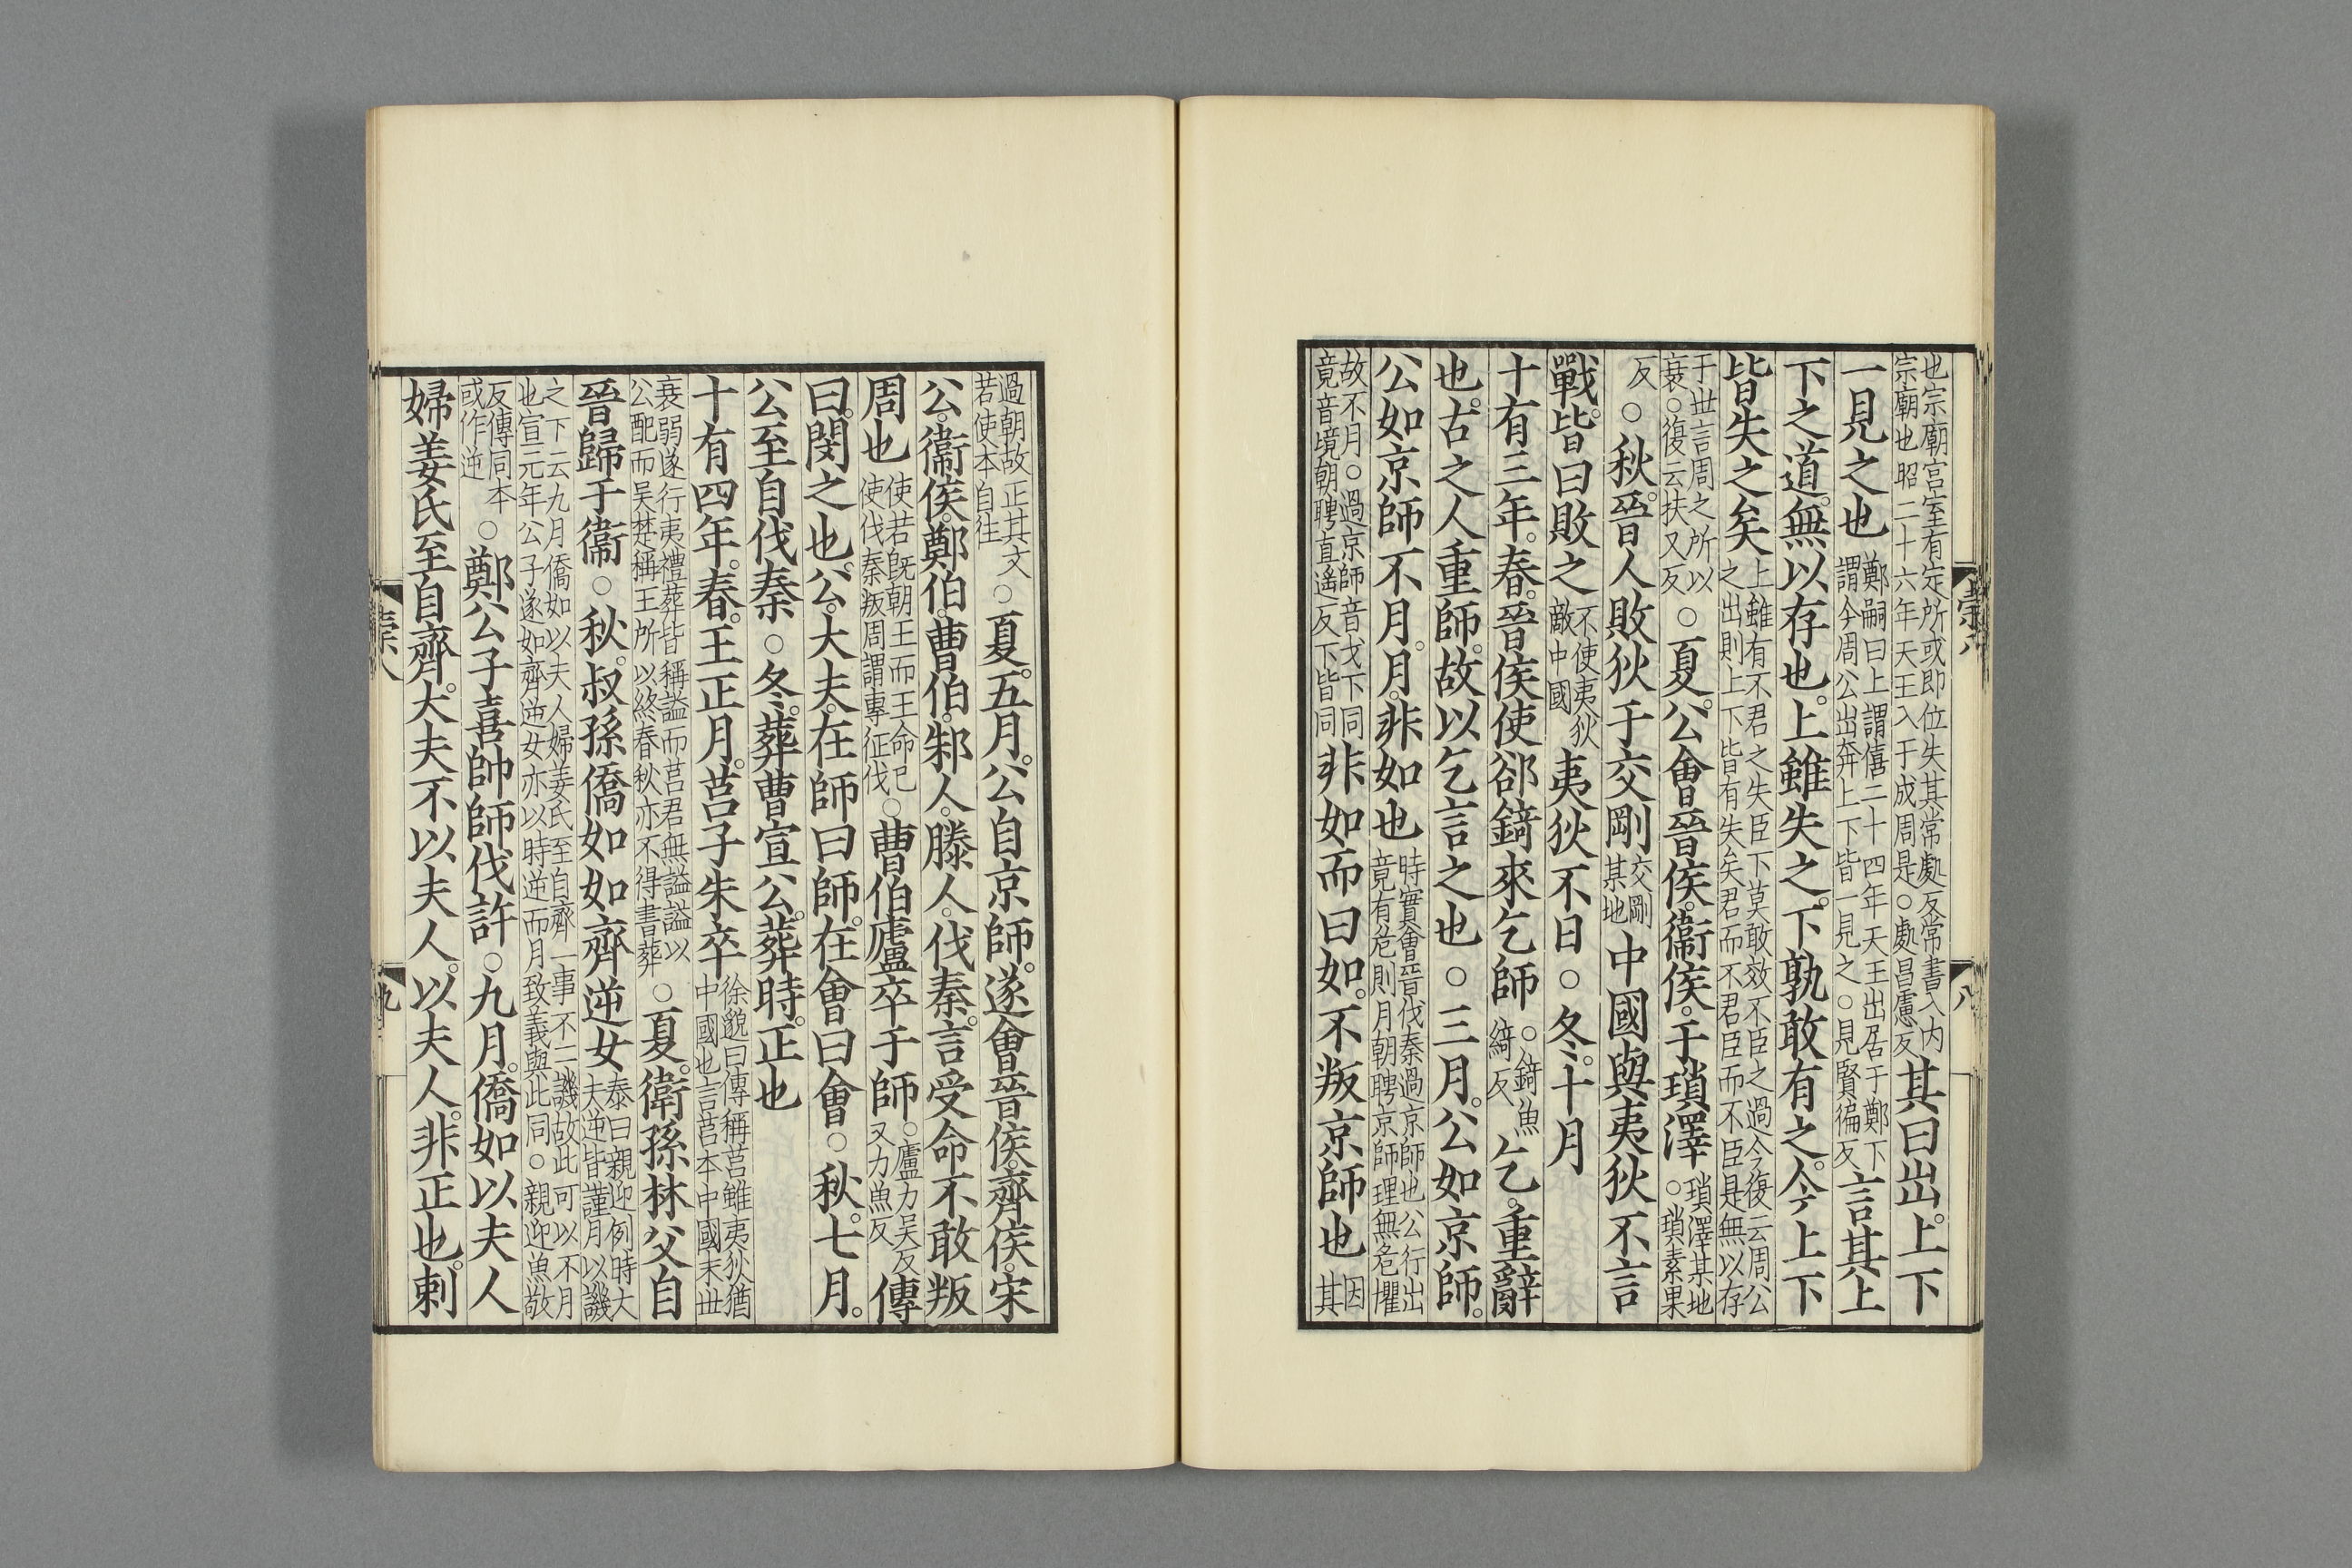 也宗廟宫室有定所或即位失其常處反常書入内
宗廟也昭二十六年天王入于成周是○處昌慮反
其曰出上下
一見之也
鄭嗣曰上謂僖二十四年天王出居于鄭下
謂今周公出奔上下皆一見之○見賢徧反
言其上
下之道無以存也上雖失之下孰敢有之今上下
皆失之矣
上雖有不君之失臣下莫敢效不臣之過今復云周公
之出則上下皆有失矣君而不君臣而不臣是無以存
于世言周之所以
衰○復云扶又反
○夏公會晉侯衞侯于瑣澤
瑣澤某地
○瑣素果
反
○秋晉人敗狄于交剛
交剛
某地
中國與夷狄不言
戰皆曰敗之
不使夷狄
敵中國
夷狄不日○冬十月
十有三年春晉侯使郤錡來乞師
○錡魚
綺反
乞重辭
也古之人重師故以乞言之也○三月公如京師
公如京師不月月非如也
時實會晉伐秦過京師也公行出
竟有危則月朝聘京師理無危懼
故不月○過京師音戈下同
竟音境朝聘直遙反下皆同
非如而曰如不叛京師也
因
其
過朝故正其文
若使本自往
○夏五月公自京師遂會晉侯齊侯宋
公衞侯鄭伯曹伯邾人滕人伐秦言受命不敢叛
周也
使若既朝王而王命已
使伐秦叛周謂專征伐
○曹伯廬卒于師
○廬力吴反
又力魚反
傳
曰閔之也公大夫在師曰師在會曰會○秋七月
公至自伐秦○冬葬曹宣公葬時正也
十有四年春王正月莒子朱卒
徐邈曰傳稱莒雖夷狄猶
中國也言莒本中國末世
衰弱遂行夷禮葬皆稱謚而莒君無謚謚以
公配而吴楚稱王所以終春秋亦不得書葬
○夏衛孫林父自
晉歸于衞○秋叔孫僑如如齊逆女
泰曰親迎例時大
夫逆皆謹月以譏
之下云九月僑如以夫人婦姜氏至自齊一事不二譏故此可以不月
也宣元年公子遂如齊逆女亦以時逆而月致義與此同○親迎魚敬
反傳同本
或作逆
○鄭公子喜帥師伐許○九月僑如以夫人
婦姜氏至自齊大夫不以夫人以夫人非正也刺
八
九